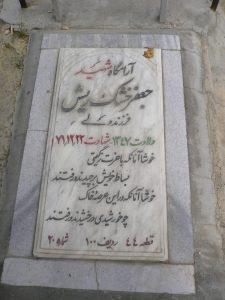 آرامگاه شهید
جعفر خشک ریش
فرزند ولی
ولادت ۱۳۴۷ شهادت ۷۱,۱۲,۲۳
خوشا آنانکه با عزت ز گیتی
بساط خویش برچیدند و رفتند
خوشا آنانکه در این عرصه خاک
چو خورشیدی درخشیدند و رفتند
قطعه ۴۴ ردیف ۱۰۰ شماره ۲۰